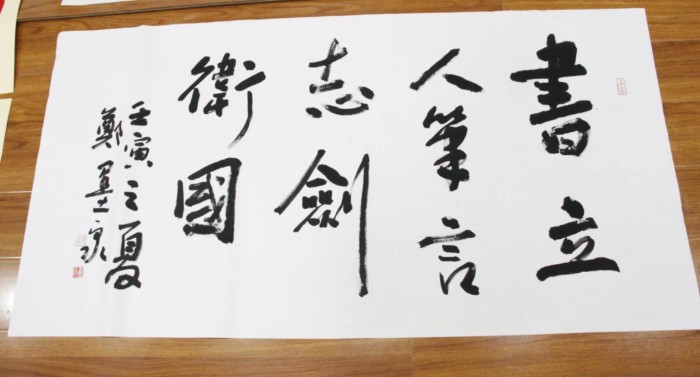 書立
人筆言
志劍
衛國
壬寅之夏
鄭墨泉